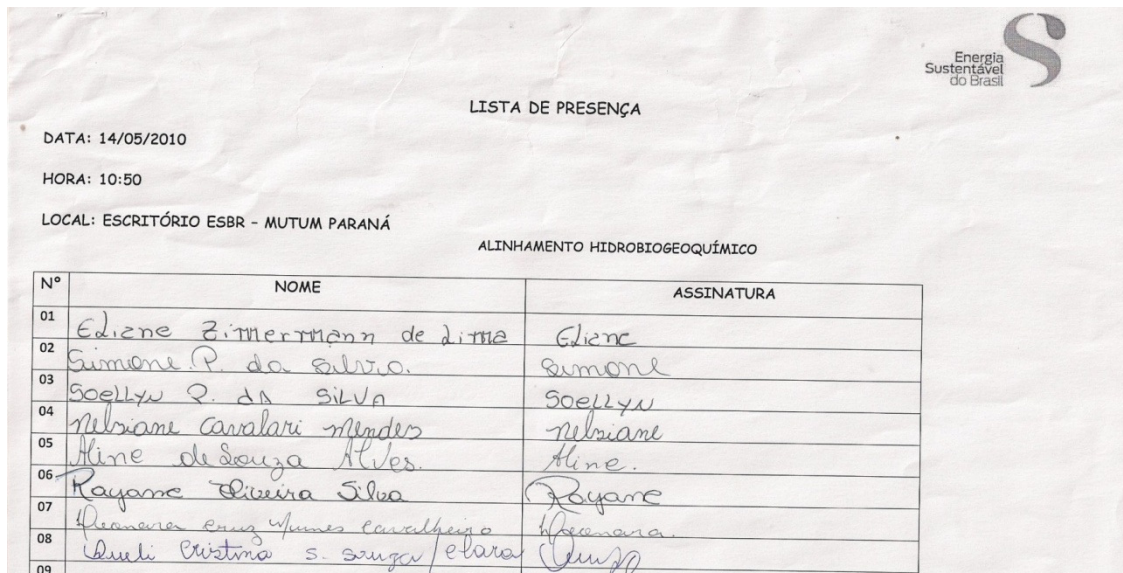 Energia
Sustentável
do Brasil
LISTA DE PRESENÇA
DATA: 14/05/2010
HORA: 10:50
LOCAL: ESCRITÓRIO ESBR - MUTUM PARANÁ
ALINHAMENTO HIDROBIOGEOQUÍMICO
Nº NOME ASSINATURA
01 Eliane Zimermann de Lima Eliane
02 Simone P. da Silva. Simone
03 Soellyn P. da SILVA Soellyn
04 Nelsiane Cavalari Mendes Nelsiane
05 Aline de Souza Alves. Aline.
06 Rayane Oliveira Silva Rayane
07 Cruz Nunes Cavalheiro
08 Sueli Cristina S. Souza / Clara
09